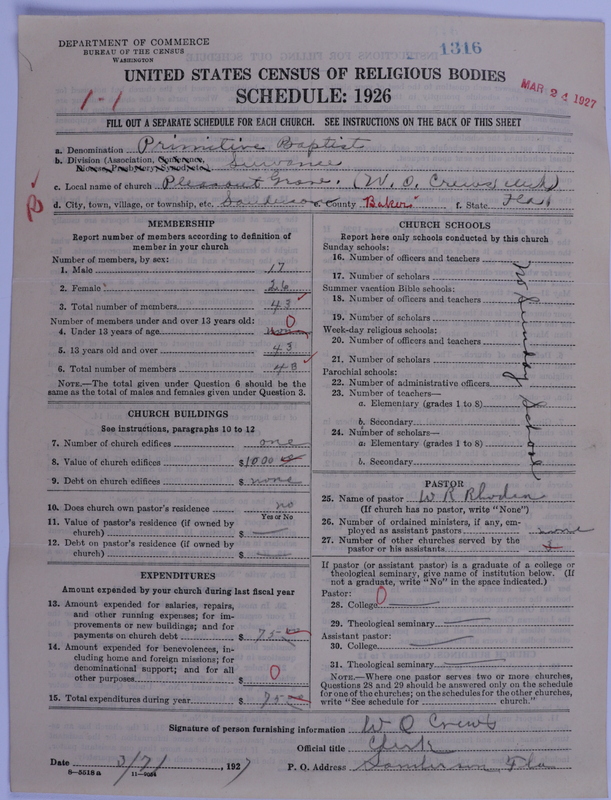 DEPARTMENT OF COMMERCE
BUREAU OF THE CENSUS
WASHINGTON
1316
UNITED STATES CENSUS OF RELIGIOUS BODIES
SCHEDULE: 1926
MAR 24 1927
1-1
FILL OUT A SEPARATE SCHEDULE FOR EACH CHURCH. SEE INSTRUCTIONS ON THE BACK OF THIS SHEET
a. Denomination Primitive Baptist
b. Division (Association, Conference, Diocese, Presbytery, Synod, etc.) Suwanee
c. Local name of church Pleasant Grove. (W. O. Crews, clerk)
d. City, town, village, or township, etc. Sanderson County "Baker" f. State Fla
MEMBERSHIP
Report number of members according to definition of
member in your church
Number of members, by sex:
1. Male 17
2. Female 26
3. Total number of members 43
Number of members under and over 13 years old:
4. Under 13 years of age none 0
5. 13 years old and over 43
6. Total number of members 43
NOTE.—The total given under Question 6 should be the
same as the total of males and females given under Question 3.
CHURCH BUILDINGS
See instructions, paragraphs 10 to 12
7. Number of church edifices one
8. Value of church edifices $1000
9. Debt on church edifices $ none
10. Does church own pastor's residence no
Yes or No
11. Value of pastor's residence (if owned by
church) $
12. Debt on pastor's residence (if owned by
church) $
EXPENDITURES
Amount expended by your church during last fiscal year
13. Amount expended for salaries, repairs,
and other running expenses; for im-
provements or new buildings; and for
payments on church debt $ 75
14. Amount expended for benevolences, in-
cluding home and foreign missions; for
denominational support; and for all
other purposes $ 0
15. Total expenditures during year $ 75
CHURCH SCHOOLS
Report here only schools conducted by this church
Sunday schools:
16. Number of officers and teachers
17. Number of scholars
Summer vacation Bible schools:
18. Number of officers and teachers
19. Number of scholars
Week-day religious schools:
20. Number of officers and teachers
21. Number of scholars
Parochial schools:
22. Number of administrative officers
23. Number of teachers—
a. Elementary (grades 1 to 8)
b. Secondary
24. Number of scholars—
a. Elementary (grades 1 to 8)
b. Secondary
No Sunday School
PASTOR
25. Name of pastor W R Rhoden
(If church has no pastor, write "None")
26. Number of ordained ministers, if any, em-
ployed as assistant pastors none
27. Number of other churches served by the
pastor or his assistants
If pastor (or assistant pastor) is a graduate of a college or
theological seminary, give name of institution below. (If
not a graduate, write "No" in the space indicated.)
Pastor:
28. College 0
29. Theological seminary
Assistant pastor:
30. College
31. Theological seminary
NOTE.—Where one pastor serves two or more churches,
Questions 28 and 29 should be answered only on the schedule
for one of the churches; on the schedules for the other churches,
write "See schedule for church."
Signature of person furnishing information W O Crews
Official title Clerk
Date , 1927
P. O. Address Sanderson Fla
8—5518 a 11—9054